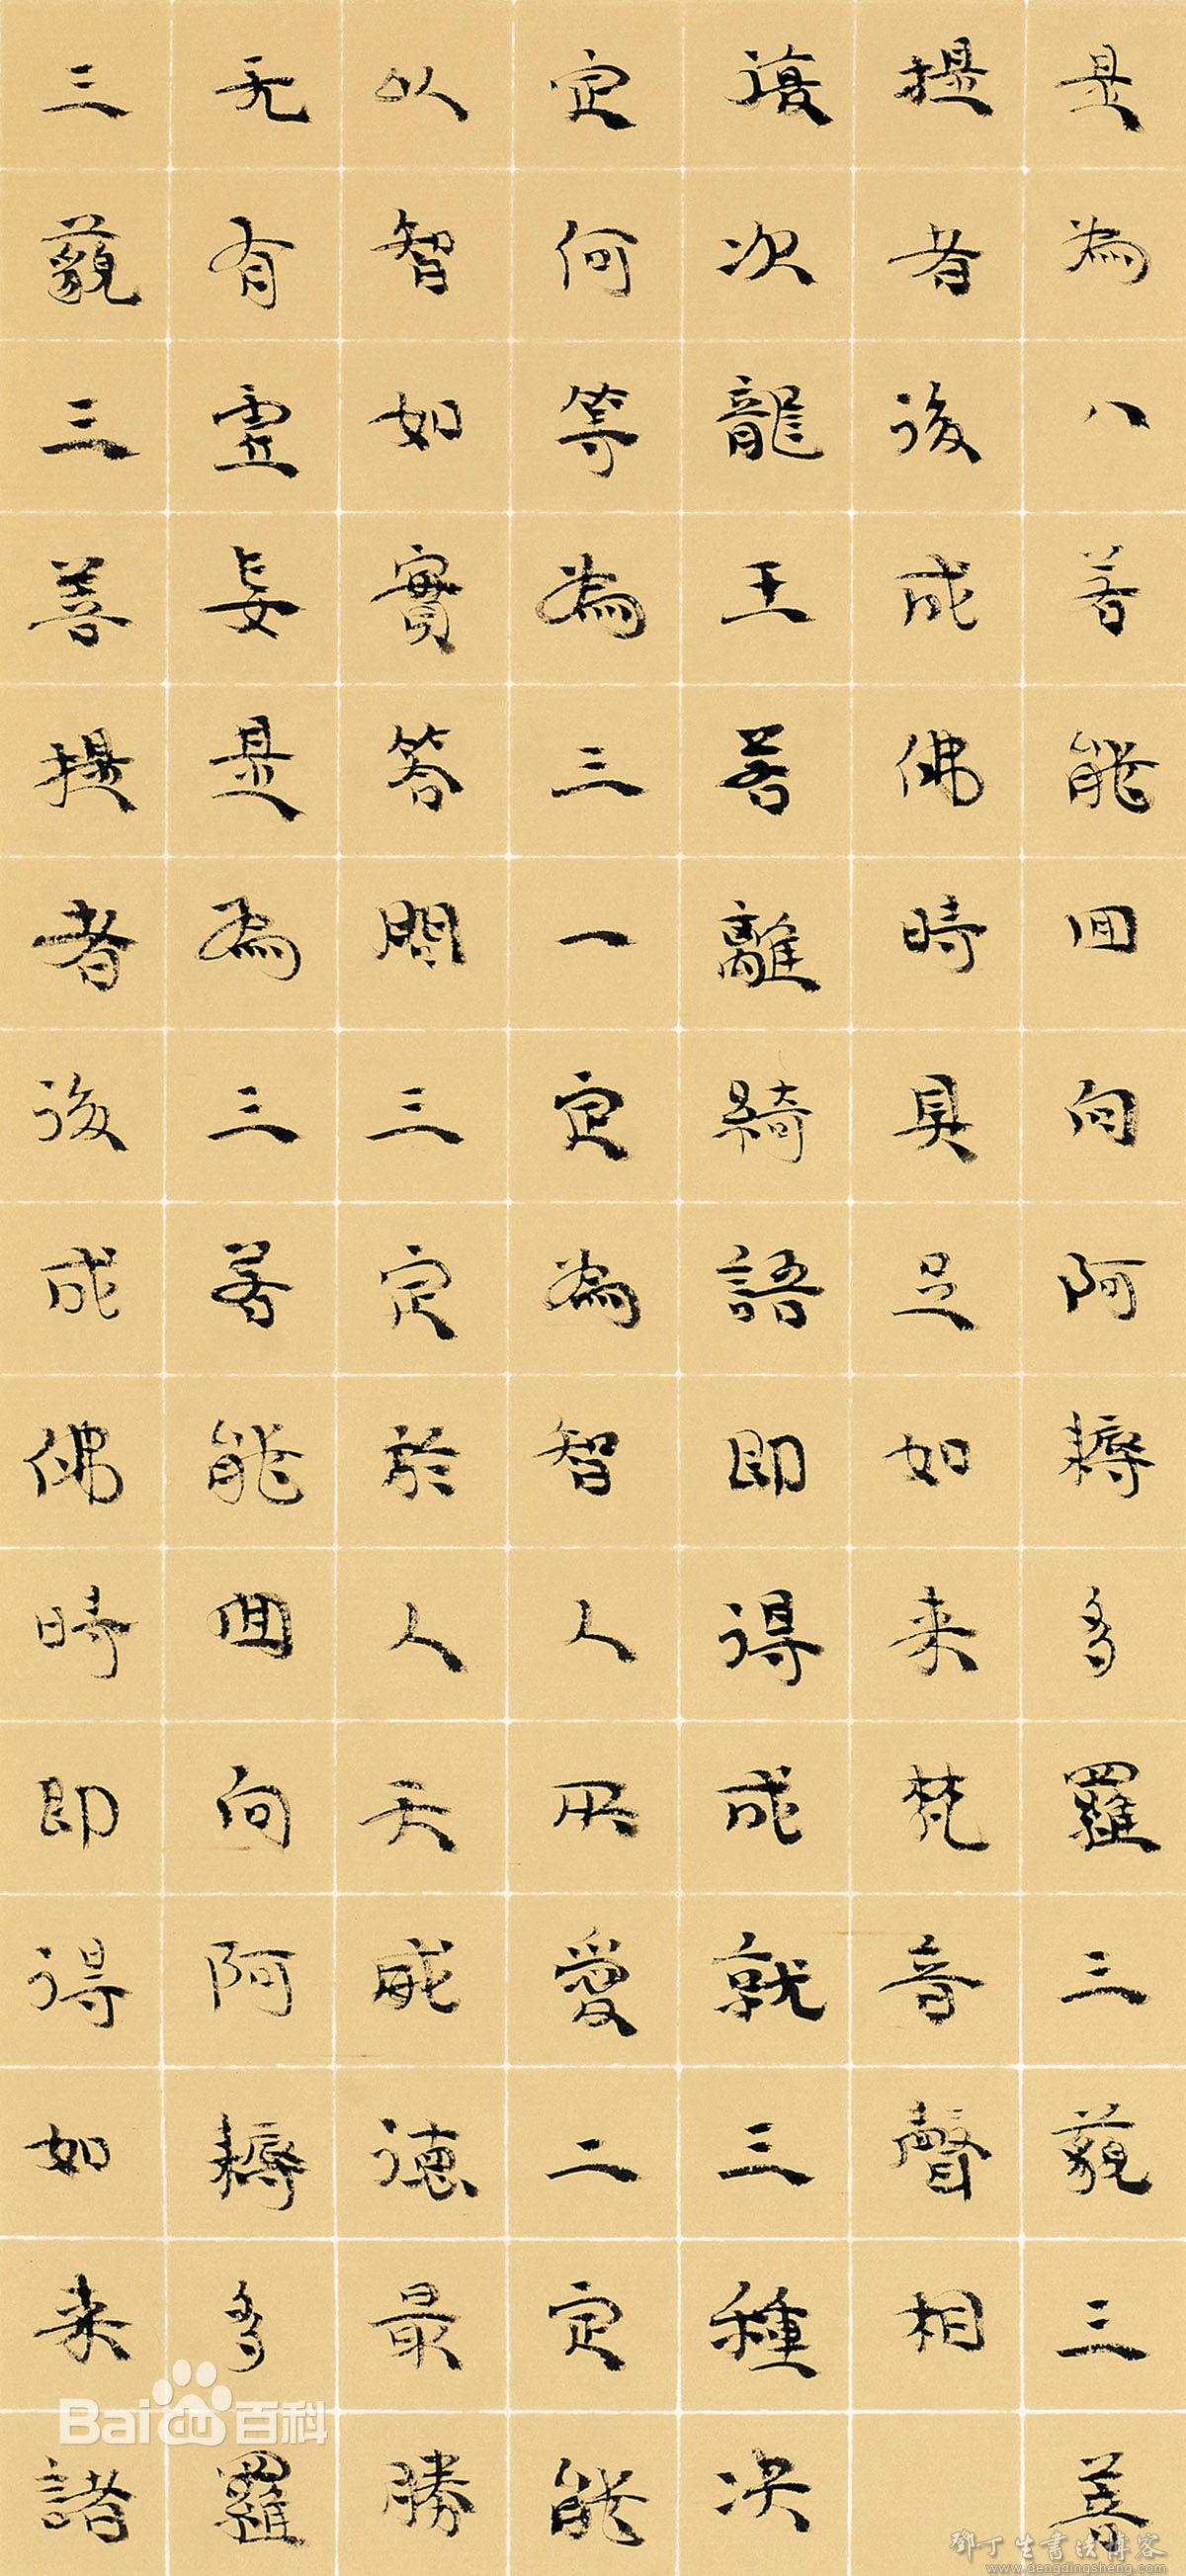 是為八若能回向阿耨多羅三藐三菩
提者後成佛時具足如来梵音聲相
復次龍王若離綺語即得成就三種決
定何等為三一定為智人所愛二定能
以智如實答問三定於人天威德最勝
无有虚妄是為三若能回向阿耨多羅
三藐三菩提者後成佛時即得如来諸
Baidu百科
鄧丁生書法博客
www.dengdingsheng.com